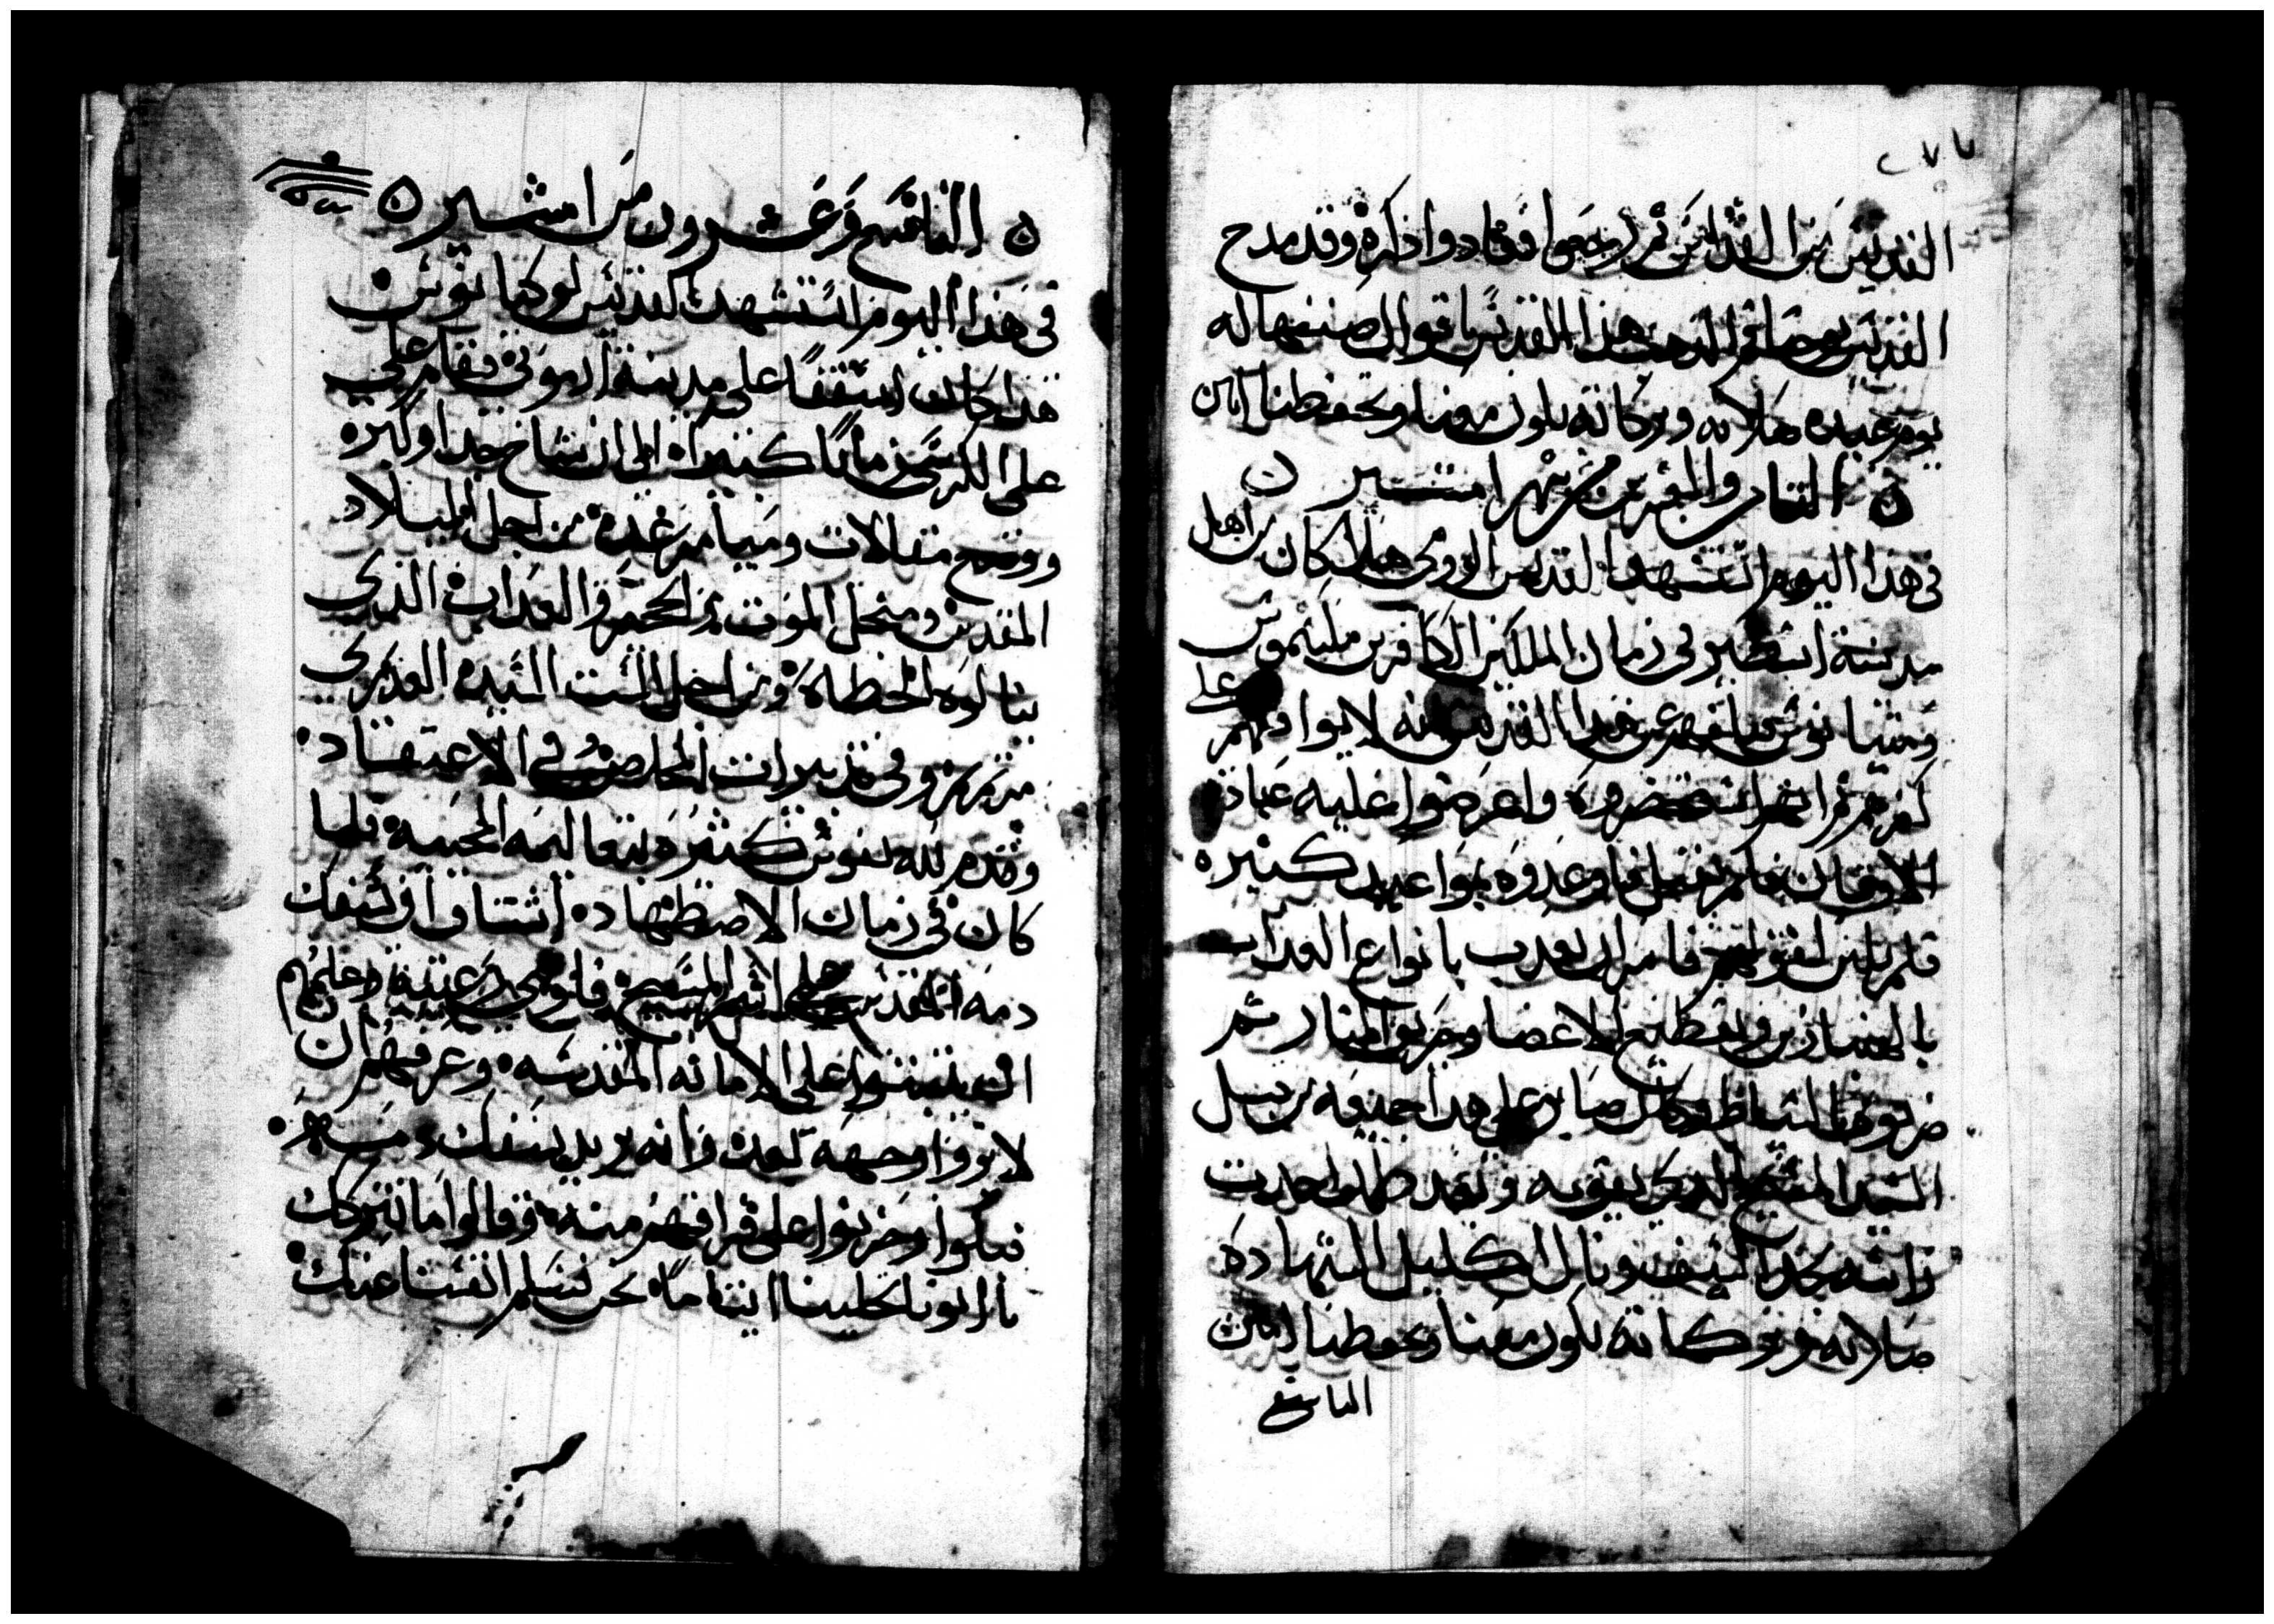 القديس من الشدايد ثم رجعوا فعادوا ذكره وقد مدح
القديس يوحنا فم الذهب هذا القديس باقوال صنفها له
يوم عيده صلاته وبركاته تكون معنا وتحفظنا امين
الثامن والعشرين من شهر امشير
في هذا اليوم استشهد القديس تاودري هذا كان من اهل
مدينة اسطير في زمان الملكين الكافرين مكسيموس
ومتيانوس فبلغهم عن هذا القديس انه لا يوافقهم على
كفرهم فاستحضروه واعرضوا عليه عبادة
الاوثان فلم يفعل فاوعدوه بمواعيد كثيره
فلم يلين لقولهم فامر ان يعذب بانواع العذاب
بالهنبازين وتقطيع الاعضا وحريق النار ثم
ضربوه بالسياط وكان صابر على هذا جميعه من قبل
السيد المسيح الذي يقويه وبعد هذا اخذت
راسه بحد السيف ونال اكليل الشهاده
صلاته وبركاته تكون معنا وتحفظنا امين
التاسع
التاسع وعشرون من امشير
في هذا اليوم استشهد القديس بوليكاربوس
هذا كان اسقفا على مدينة ازمرني فقام على
على الكرسي زمانا كثيرا الى ان شاخ جدا وكبره
ووضع مقالات وميامر عده من اجل الميلاد
المقدس ومن اجل الموت والجحيم والعذاب الذي
ينالوه الخطاه ومن اجل الست السيده العذري
مرتمريم وفي تدبيرات المخلص في الاعتقاد
وقدم لله نفوس كثيره بتعاليمه المحييه فلما
كان في زمان الاضطهاده اشتاق ان يسفك
دمه المقدس على اسم المسيح فاوصى رعيته وعلمهم
ان يثبتوا على الامانه المقدسه وعرفهم ان
لا يروا وجهه بعد وانه يريد يسفك دمه
فبكوا وحزنوا على فراقهم منه وقالوا ما نتركك
يا ابونا تخلينا ايتاما نحن نسلم انفسنا عنك